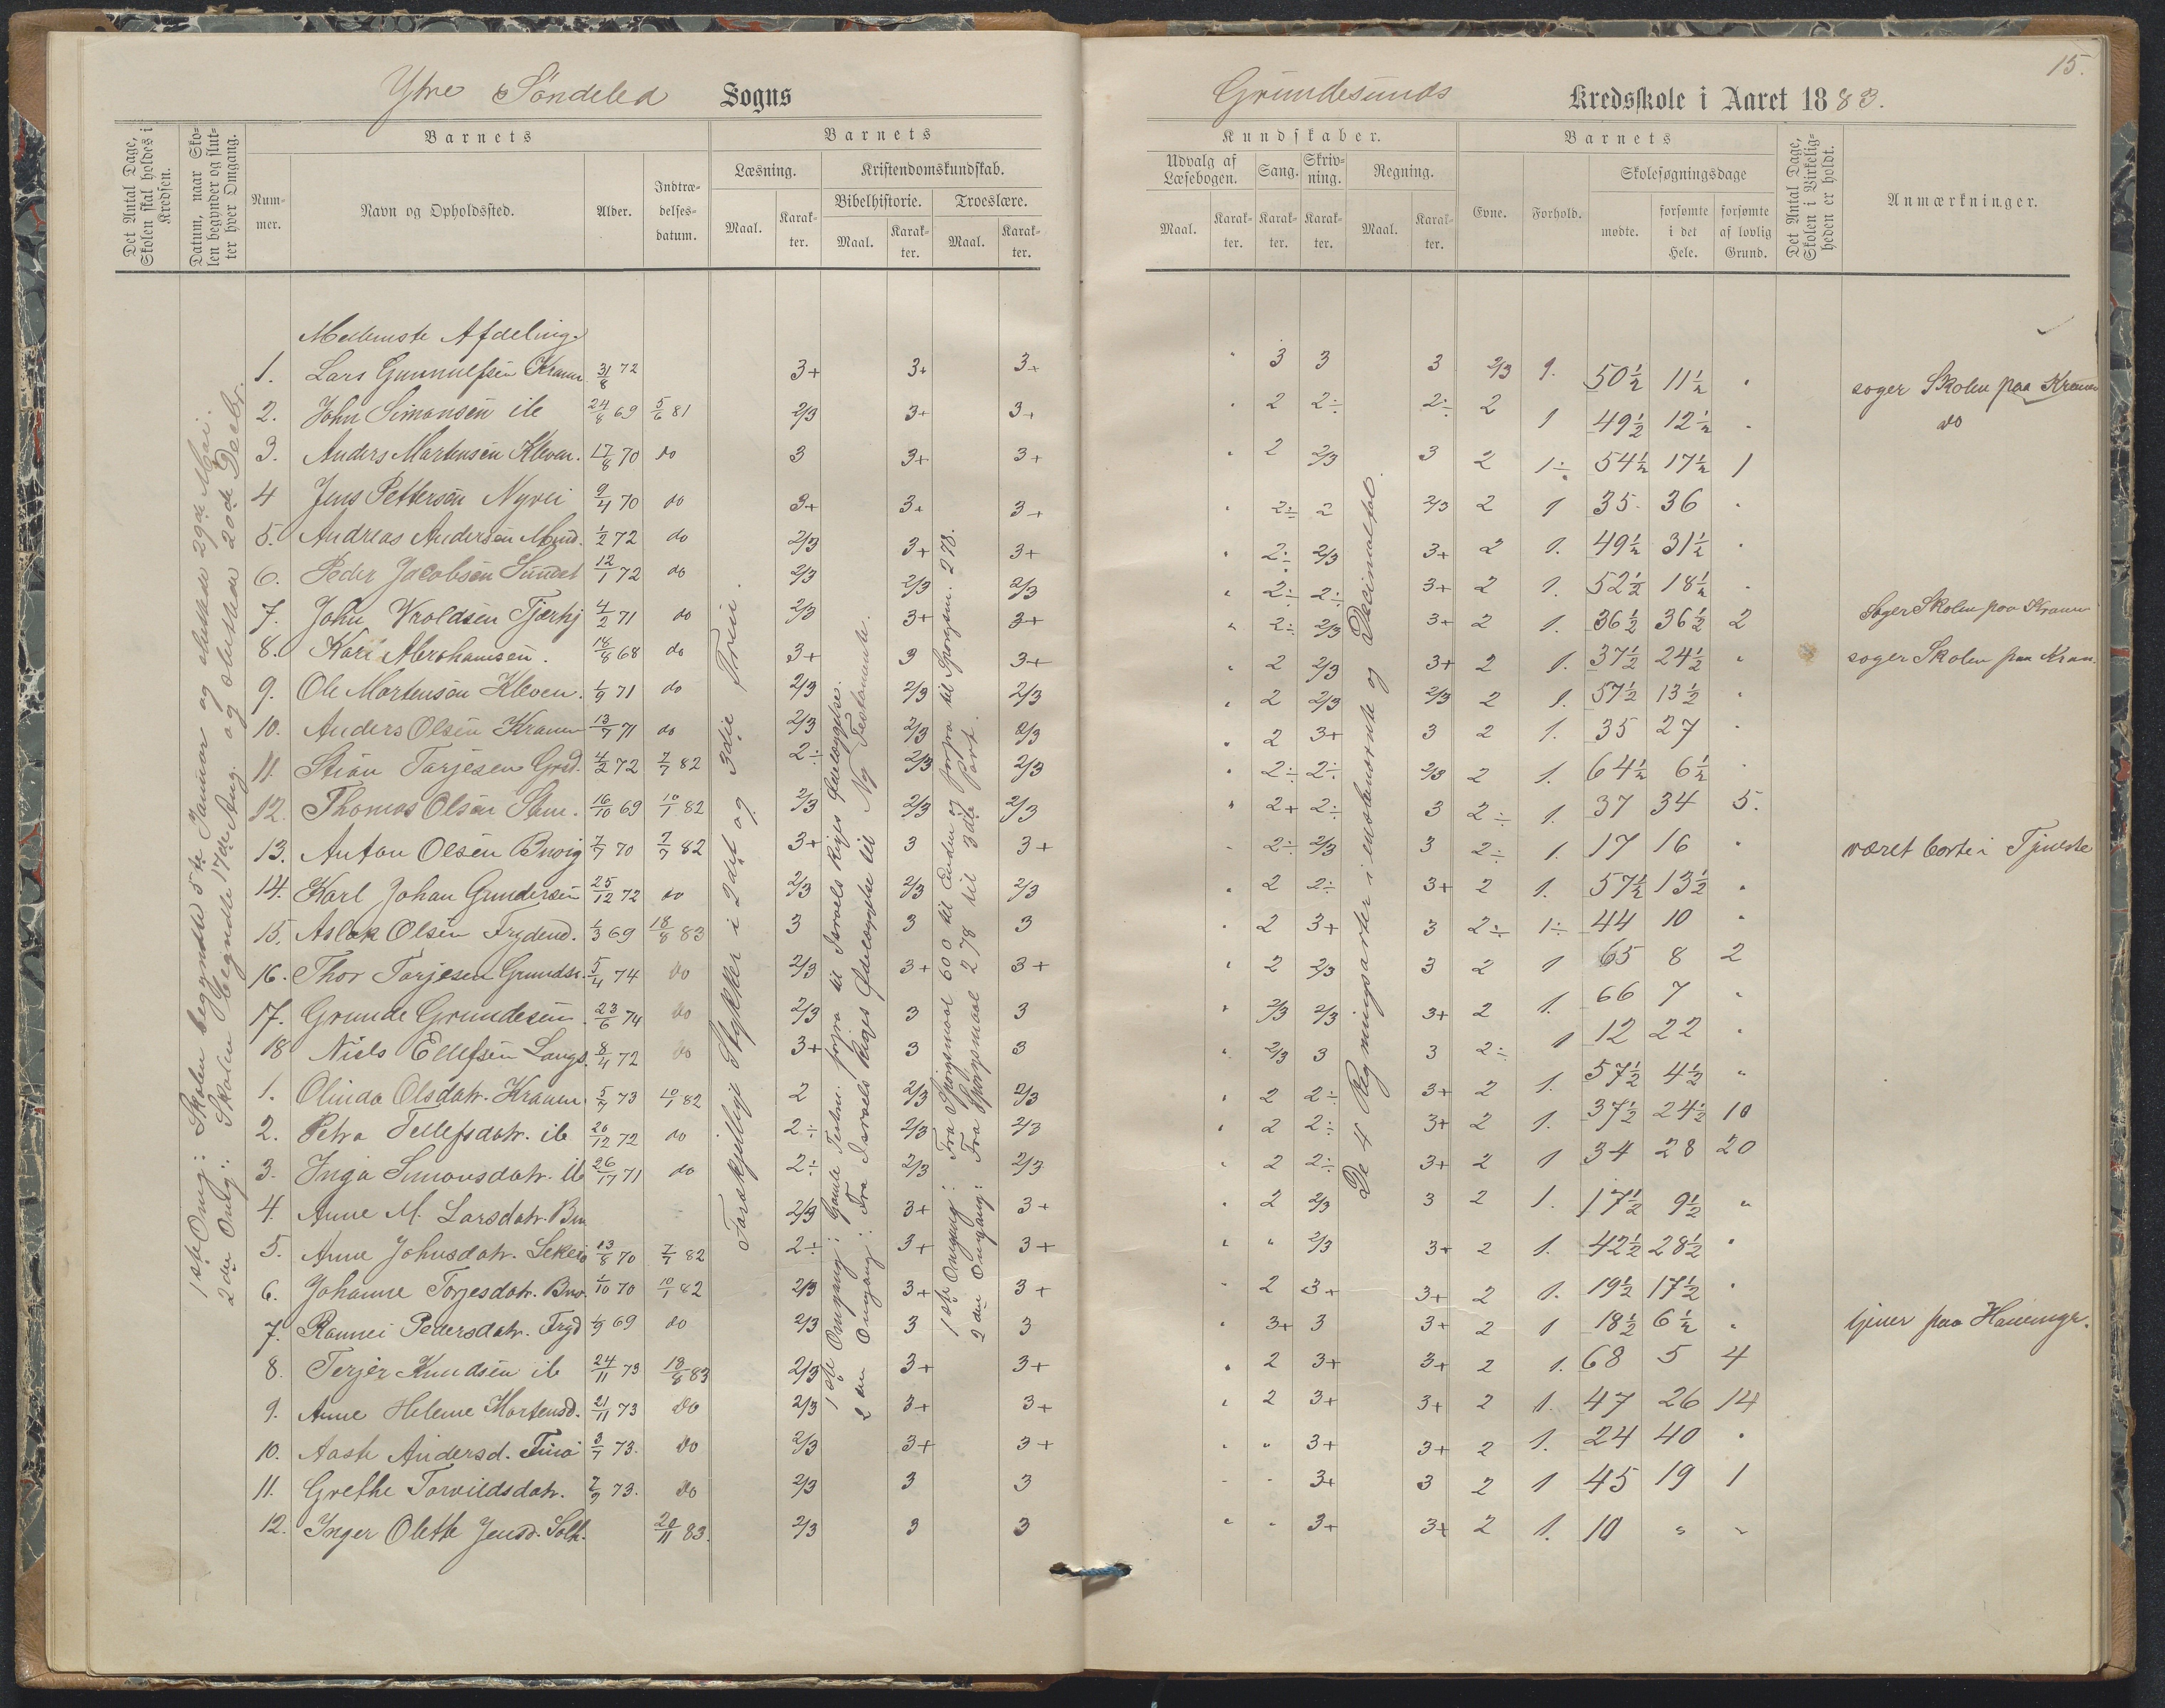 15.
Ytre Søndeled Sogns
Grundesunds Kredsskole i Aaret 1883.
Det Antal Dage, Skolen skal holdes i Kredsen.
Datum, naar Skolen begynder og slutter hver Omgang.
Barnets
Barnets
Kundskaber.
Barnets
Nummer.
Navn og Opholdssted.
Alder.
Indtrædelsesdatum.
Læsning.
Kristendomskundskab.
Bibelhistorie.
Troeslære.
Maal.
Karakter.
Maal.
Karakter.
Maal.
Karakter.
Udvalg af Læsebogen.
Sang.
Skrivning.
Regning.
Maal.
Karakter.
Karakter.
Karakter.
Maal.
Karakter.
Evne.
Forhold.
Skolesøgningsdage
mødte.
forsømte i det Hele.
forsømte af lovlig Grund.
Det Antal Dage, Skolen i Virkeligheden er holdt.
Anmærkninger.
1ste Omg: Skolen begyndte 5te Januar og sluttede 29de Mai.
2den Omg: Skolen begyndte 17de Aug. og sluttede 20de Decbr.
Forskjellige Stykker i 2det og 3die Trin.
1ste Omgang: Gamle Testm. forfra til Israels Riges Ødelæggelse.
2den Omgang: Fra Israels Riges Ødelæggelse til Ny Testamente.
1ste Omgang: Fra Spørgsmaal 600 til Enden og forfra til Spørgsm. 278.
2den Omgang: Fra Spørgsmaal 278 til 3die Part.
De 4 Regningsarter i ensbenævnte og Decimaltal.
Mellemste Afdeling.
1. Lars Gunnulfsen Kranen 31/8 72 3+ 3+ 3+ " 3 3 3 2/3 1. 50½ 11½ " søger Skolen paa Kranen
2. John Simonsen ib 24/8 69 5/6 81 2/3 3+ 3+ " 2 2÷ 2÷ 2 1 49½ 12½ " do
3. Anders Martensen Kleven. 17/8 70 do 3 3+ 3+ " 2 2/3 3 2 1÷ 54½ 17½ 1
4 Jens Pettersen Nyvei 9/4 70 do 3+ 3+ 3+ " 2÷ 2 2/3 2 1 35 36 "
5. Andreas Andersen 1/2 72 do 2/3 3+ 3+ " 2÷ 2/3 3+ 2 1. 49½ 31½ "
6. Peder Jacobsen Sundet 12/1 72 do 2/3 2/3 2/3 " 2÷ 2÷ 3+ 2 1. 52½ 18½ "
7. John Vroldsen Tjerkj 4/2 71 do 2/3 3+ 3+ " 2÷ 2/3 3+ 2 1. 36½ 36½ 2 Søger Skolen paa Kranen
8. Karl Abrahamsen. 18/8 68 do 3+ 3 3+ " 2 2/3 3+ 2 1. 37½ 24½ " søger Skolen paa Kran.
9. Ole Martensen Kleven. 1/9 71 do 2/3 2/3 2/3 " 2 2/3 2/3 2 1. 57½ 13½ "
10. Anders Olsen Kranen 13/7 71 do 2/3 2/3 2/3 " 2 3+ 3 2 1. 35 27 "
11. Stian Tarjesen Grd. 4/2 72 7/7 82 2÷ 2/3 2/3 " 2÷ 2÷ 2/3 2 1. 64½ 6½ "
12. Thomas Olsen 16/10 69 10/1 82 2/3 2/3 2/3 " 2+ 2÷ 3 2÷ 1. 37 34 5.
13. Anton Olsen 7/7 70 7/7 82 3+ 3 3+ " 2÷ 2/3 3 2÷ 1. 17 16 " været borte i Tjeneste
14. Karl Johan Gundersen 25/12 72 do 2/3 2/3 2/3 " 2 2÷ 3+ 2 1. 57½ 13½ "
15. Aslak Olsen Frydend. 1/3 69 18/8 83 3 3 3 " 2 3+ 3 2÷ 1÷ 44 10 "
16. Thor Tarjesen Grundes. 5/4 74 do 2/3 3+ 3+ " 2 2/3 3 2 1 65 8 2
17. Grunde Grundesen 23/6 74 do 2/3 3 3 " 2/3 2/3 3+ 2 1. 66 7 "
18 Niels Ellefsen Langs. 8/4 72 do 3+ 3 3 " 2/3 3 3 2÷ 1 12 22 "
1. Olinda Olsdatr. Kranen. 5/7 73 10/1 82 2 2/3 2/3 " 2 2÷ 3+ 2 1. 57½ 4½ "
2. Petra Tellefsdatr. ib 20/12 72 do 2÷ 2/3 2/3 " 2 2÷ 3+ 2 1. 37½ 24½ 10
3. Inga Simonsdatr. ib 71 do 2÷ 2/3 2/3 " 2 2÷ 3+ 2 1 34 28 20
4. Anne M. Larsdatr. 2/3 3+ 3+ " 2 2/3 3 2 1. 17½ 9½ "
5. Anne Johnsdatr. 13/8 70 7/7 82 2÷ 3+ 3+ " " 2/3 3+ 2 1. 42½ 28½ "
6. Johanne Torjesdatr. 1/10 70 10/1 82 2/3 3+ 3+ " 2 3+ 3+ 2 1. 19½ 17½ "
7. Pedersdatr. Fryd 1/9 69 do 2/3 3 3 " 3+ 3 3+ 2 1 18½ 6½ " tjener paa
8. Terjer Knudsen ib 24/11 73 18/8 83 2/3 3+ 3+ " 2 3+ 3+ 2 1. 68 5 4
9. Anne Helene Martensd. 21/11 73 do 2/3 3+ 3+ " 2 3+ 3+ 2 1. 47 26 14
10. Aaste Andersd. 3/7 73. do 2/3 3+ 3+ " " 3+ 3+ 2 1. 24 40 "
11. Grethe Torvildsdatr. 7/9 73. do 2/3 3 3 " " 3+ 3 2 1 45 19 1
12. Inger Olette Jensd. Solb. 20/11 83. 2/3 3 3 " " 3+ 3+ 2 1. 10 " "